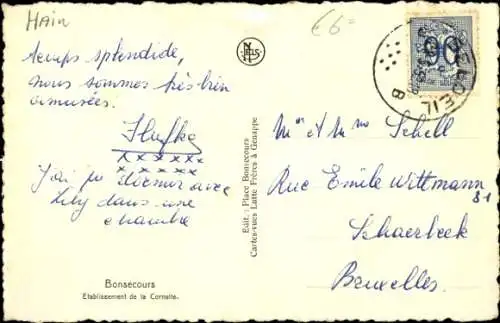 Hain
€6=
temps splendide,
nous sommes très bien
amusées.
xxxxxx
xxxxxx
J'ai pu dormir avec
Lily dans une
chambre
Bonsecours
Etablissement de la Cornette.
NELS
Edit.: Place Bonsecours
Cartes-vues Lutte Frères à Genappe
90
BELOEIL
B
Mr et Mme Schell
Rue Emile Wittmann
81
Schaerbeek
Bruxelles